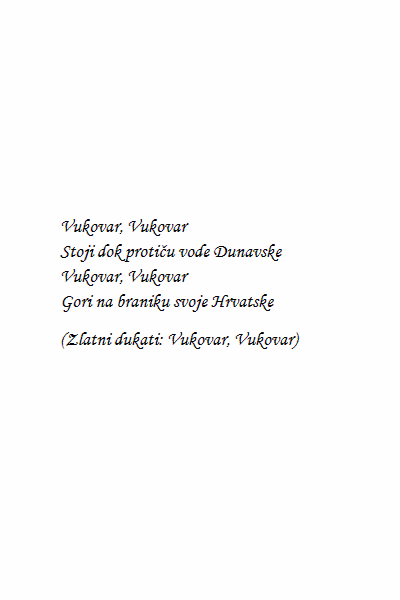 Vukovar, Vukovar
Stoji dok protiču vode Dunavske
Vukovar, Vukovar
Gori na braniku svoje Hrvatske
(Zlatni dukati: Vukovar, Vukovar)